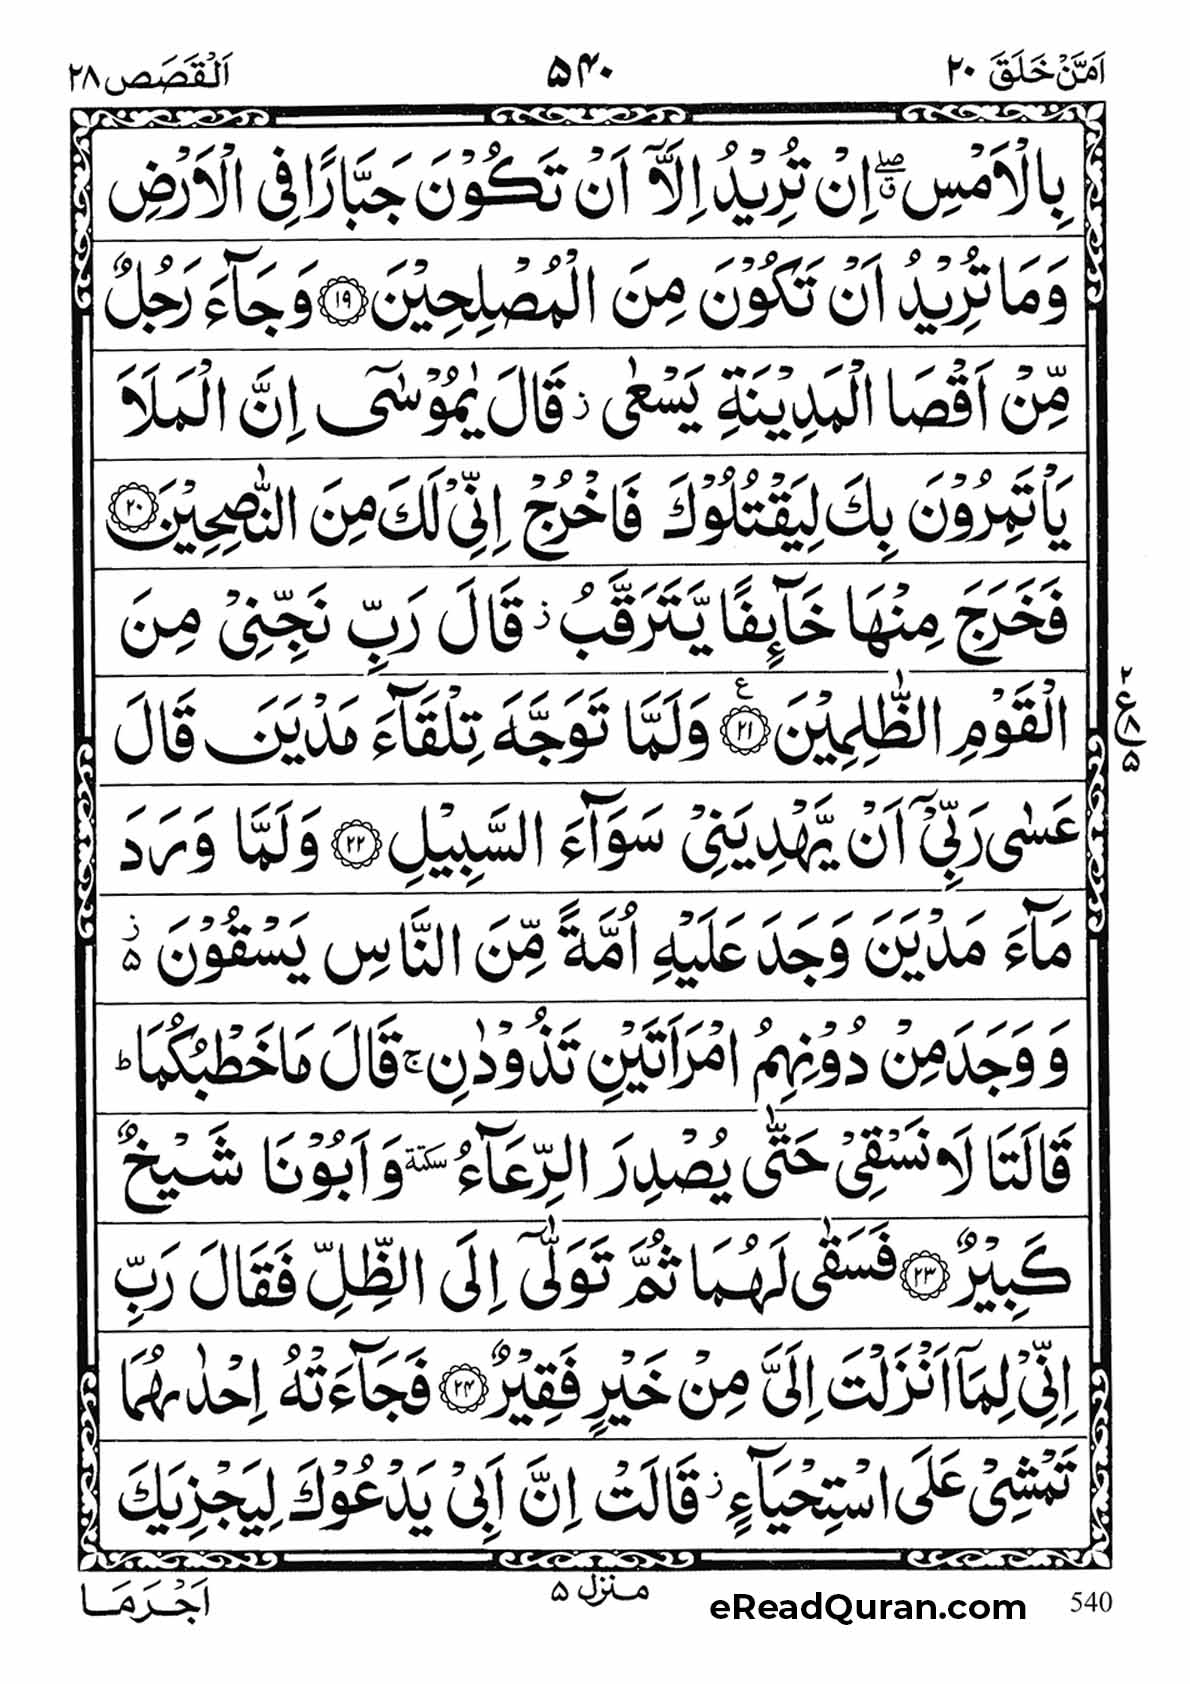 اَمَّنْ خَلَقَ ٢٠
۵۴۰
اَلْقَصَص ٢٨
بِالْاَمْسِ ۖۗ اِنْ تُرِيْدُ اِلَّاۤ اَنْ تَكُوْنَ جَبَّارًا فِي الْاَرْضِ
وَمَا تُرِيْدُ اَنْ تَكُوْنَ مِنَ الْمُصْلِحِيْنَ ﴿١٩﴾ وَجَآءَ رَجُلٌ
مِّنْ اَقْصَا الْمَدِيْنَةِ يَسْعٰى ز قَالَ يٰمُوْسٰۤى اِنَّ الْمَلَاَ
يَاْتَمِرُوْنَ بِكَ لِيَقْتُلُوْكَ فَاخْرُجْ اِنِّيْ لَكَ مِنَ النّٰصِحِيْنَ ﴿٢٠﴾
فَخَرَجَ مِنْهَا خَآئِفًا يَّتَرَقَّبُ ز قَالَ رَبِّ نَجِّنِيْ مِنَ
الْقَوْمِ الظّٰلِمِيْنَ ﴿٢١﴾ ع وَلَمَّا تَوَجَّهَ تِلْقَآءَ مَدْيَنَ قَالَ
٢
ع
٨
۵
عَسٰى رَبِّيْۤ اَنْ يَّهْدِيَنِيْ سَوَآءَ السَّبِيْلِ ﴿٢٢﴾ وَلَمَّا وَرَدَ
مَآءَ مَدْيَنَ وَجَدَ عَلَيْهِ اُمَّةً مِّنَ النَّاسِ يَسْقُوْنَ ز ۵
وَوَجَدَ مِنْ دُوْنِهِمُ امْرَاَتَيْنِ تَذُوْدٰنِ ج قَالَ مَا خَطْبُكُمَا ط
قَالَتَا لَا نَسْقِيْ حَتّٰى يُصْدِرَ الرِّعَآءُ سكتة وَاَبُوْنَا شَيْخٌ
كَبِيْرٌ ﴿٢٣﴾ فَسَقٰى لَهُمَا ثُمَّ تَوَلّٰۤى اِلَى الظِّلِّ فَقَالَ رَبِّ
اِنِّيْ لِمَاۤ اَنْزَلْتَ اِلَيَّ مِنْ خَيْرٍ فَقِيْرٌ ﴿٢٤﴾ فَجَآءَتْهُ اِحْدٰىهُمَا
تَمْشِيْ عَلَى اسْتِحْيَآءٍ ز قَالَتْ اِنَّ اَبِيْ يَدْعُوْكَ لِيَجْزِيَكَ
اَجْرَ مَا
منزل ۵
eReadQuran.com
540